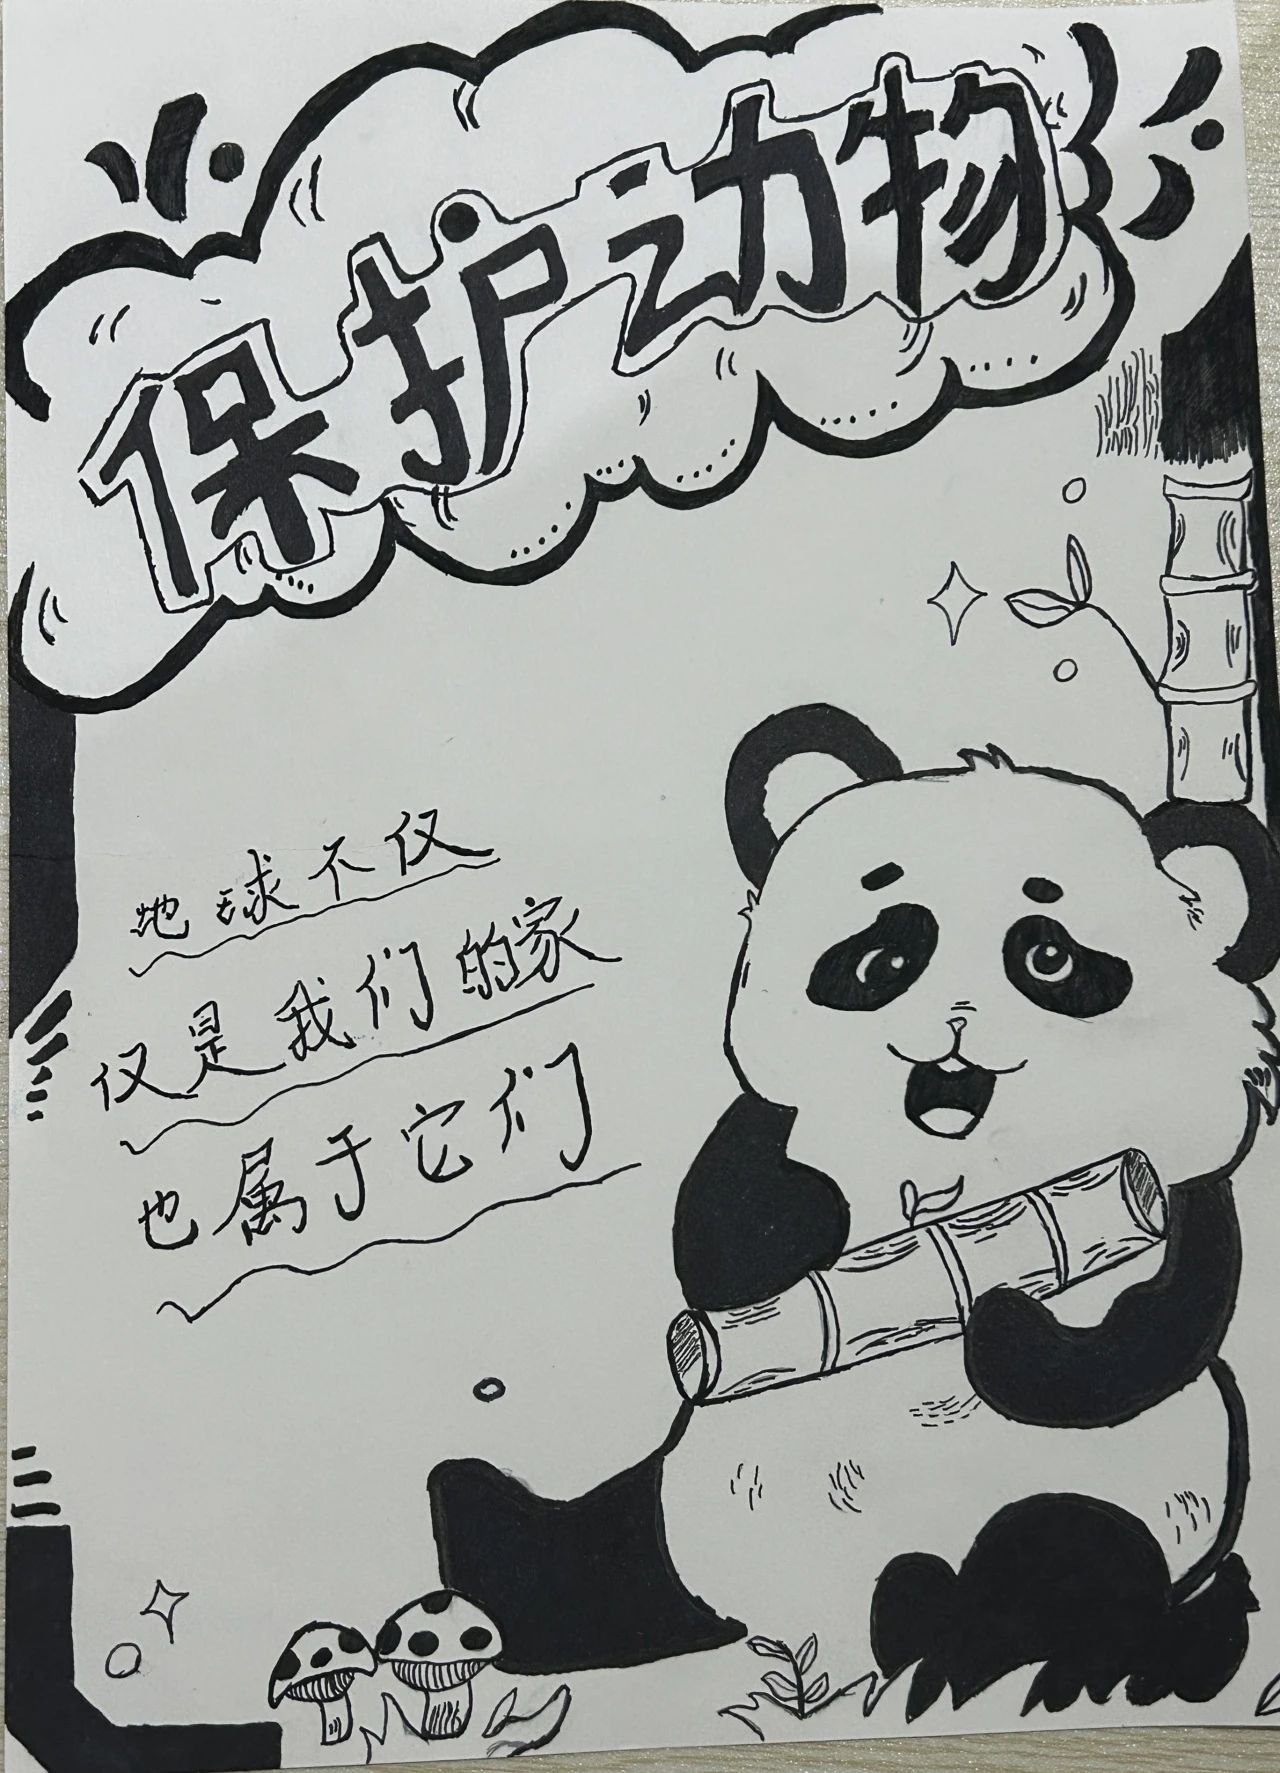 保护动物
地球不仅
仅是我们的家
也属于它们